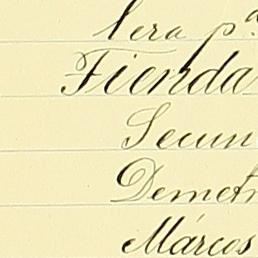 Vera pª
Tienda
Secun
Demetr
Márcos